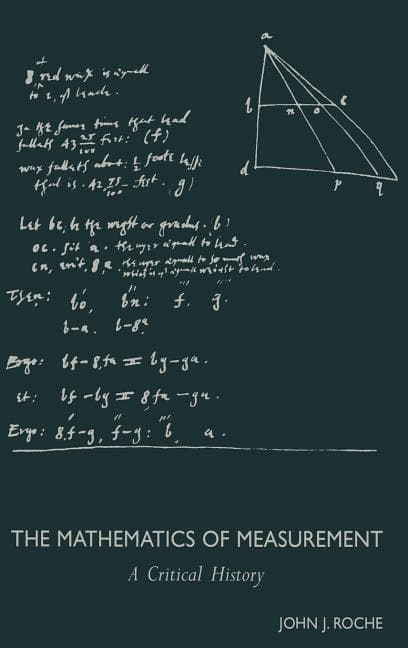 a
b n o c
d p q
8 red wax is equall
to 1, of leade.
In the same time that lead
falleth 43 25/100 feet: (f)
wax falleth about. 1/2 foote lesse
that is. 42 75/100 feet. g)
Let bc, be the weght or gradus. b)
oc. sit a. equall to lead.
cn, erit, 8,a.
Then: bo, bn: f. g.
b-a. b-8a
Ergo: bf-8,fa = bg-ga.
et: bf-bg = 8fa-ga.
Ergo: 8,f-g, f-g: b, a.
THE MATHEMATICS OF MEASUREMENT
A Critical History
JOHN J. ROCHE